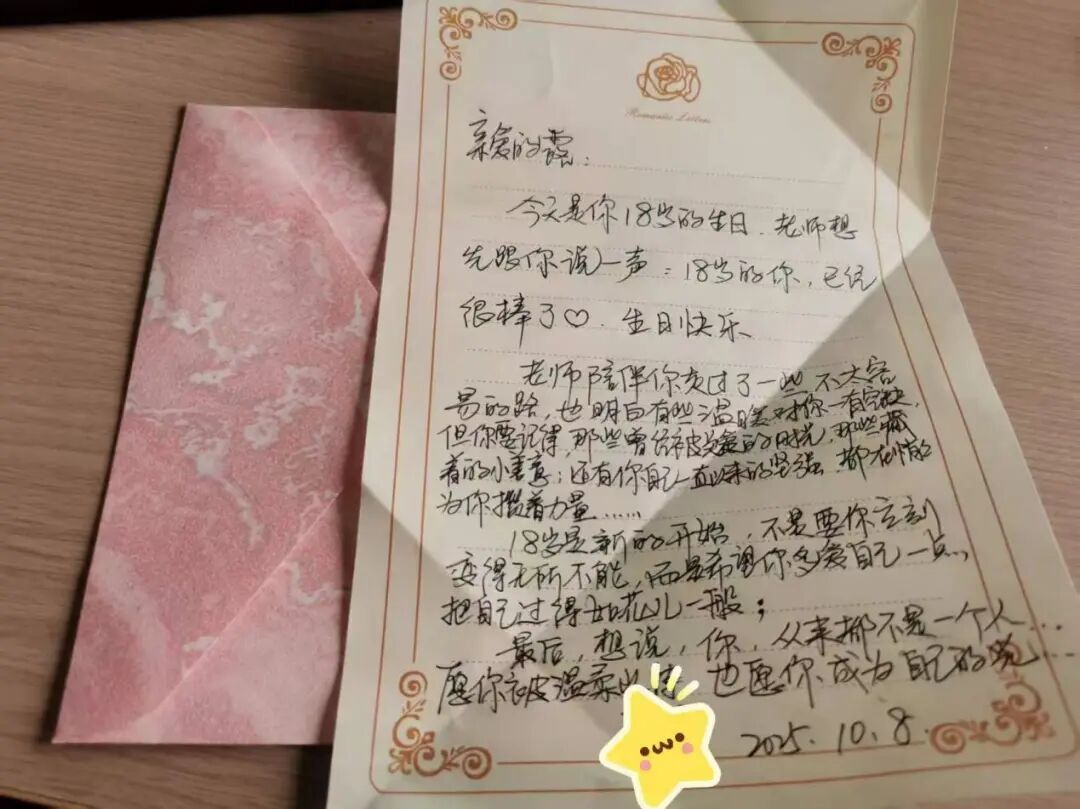 Romantic Letters
亲爱的露：
今天是你18岁的生日，老师想
先跟你说一声：18岁的你，已经
很棒了♡．生日快乐、
老师陪伴你走过了一些不太容
易的路，也明白有些温暖对你一有空缺，
但你要记得，那些曾经被关爱的时光，那些藏
着的小美意；还有你自己一直以来的坚强，都在悄的
为你攒着力量……
18岁是新的开始，不是要你立刻
变得无所不能，而是希望你多爱自己一点，
把自己过得如花儿一般；
最后，想说，你，从来都不是一个人…
愿你被温柔 也愿你成为自己的光…
2025.10.8